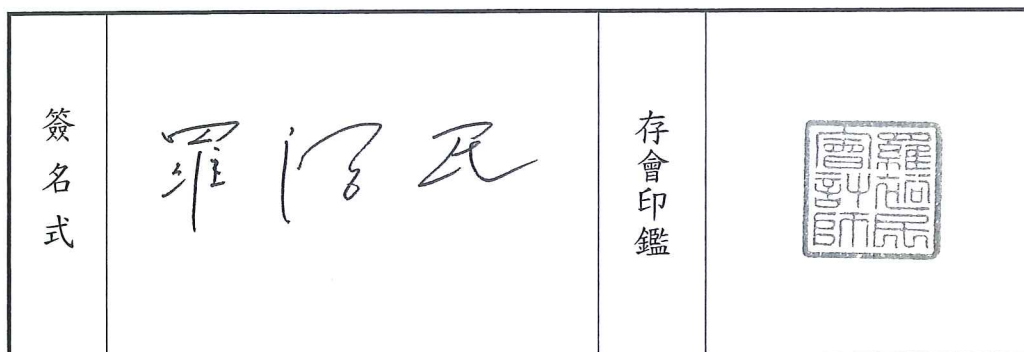 簽名式
羅裕民
存會印鑑
羅裕民
會計師